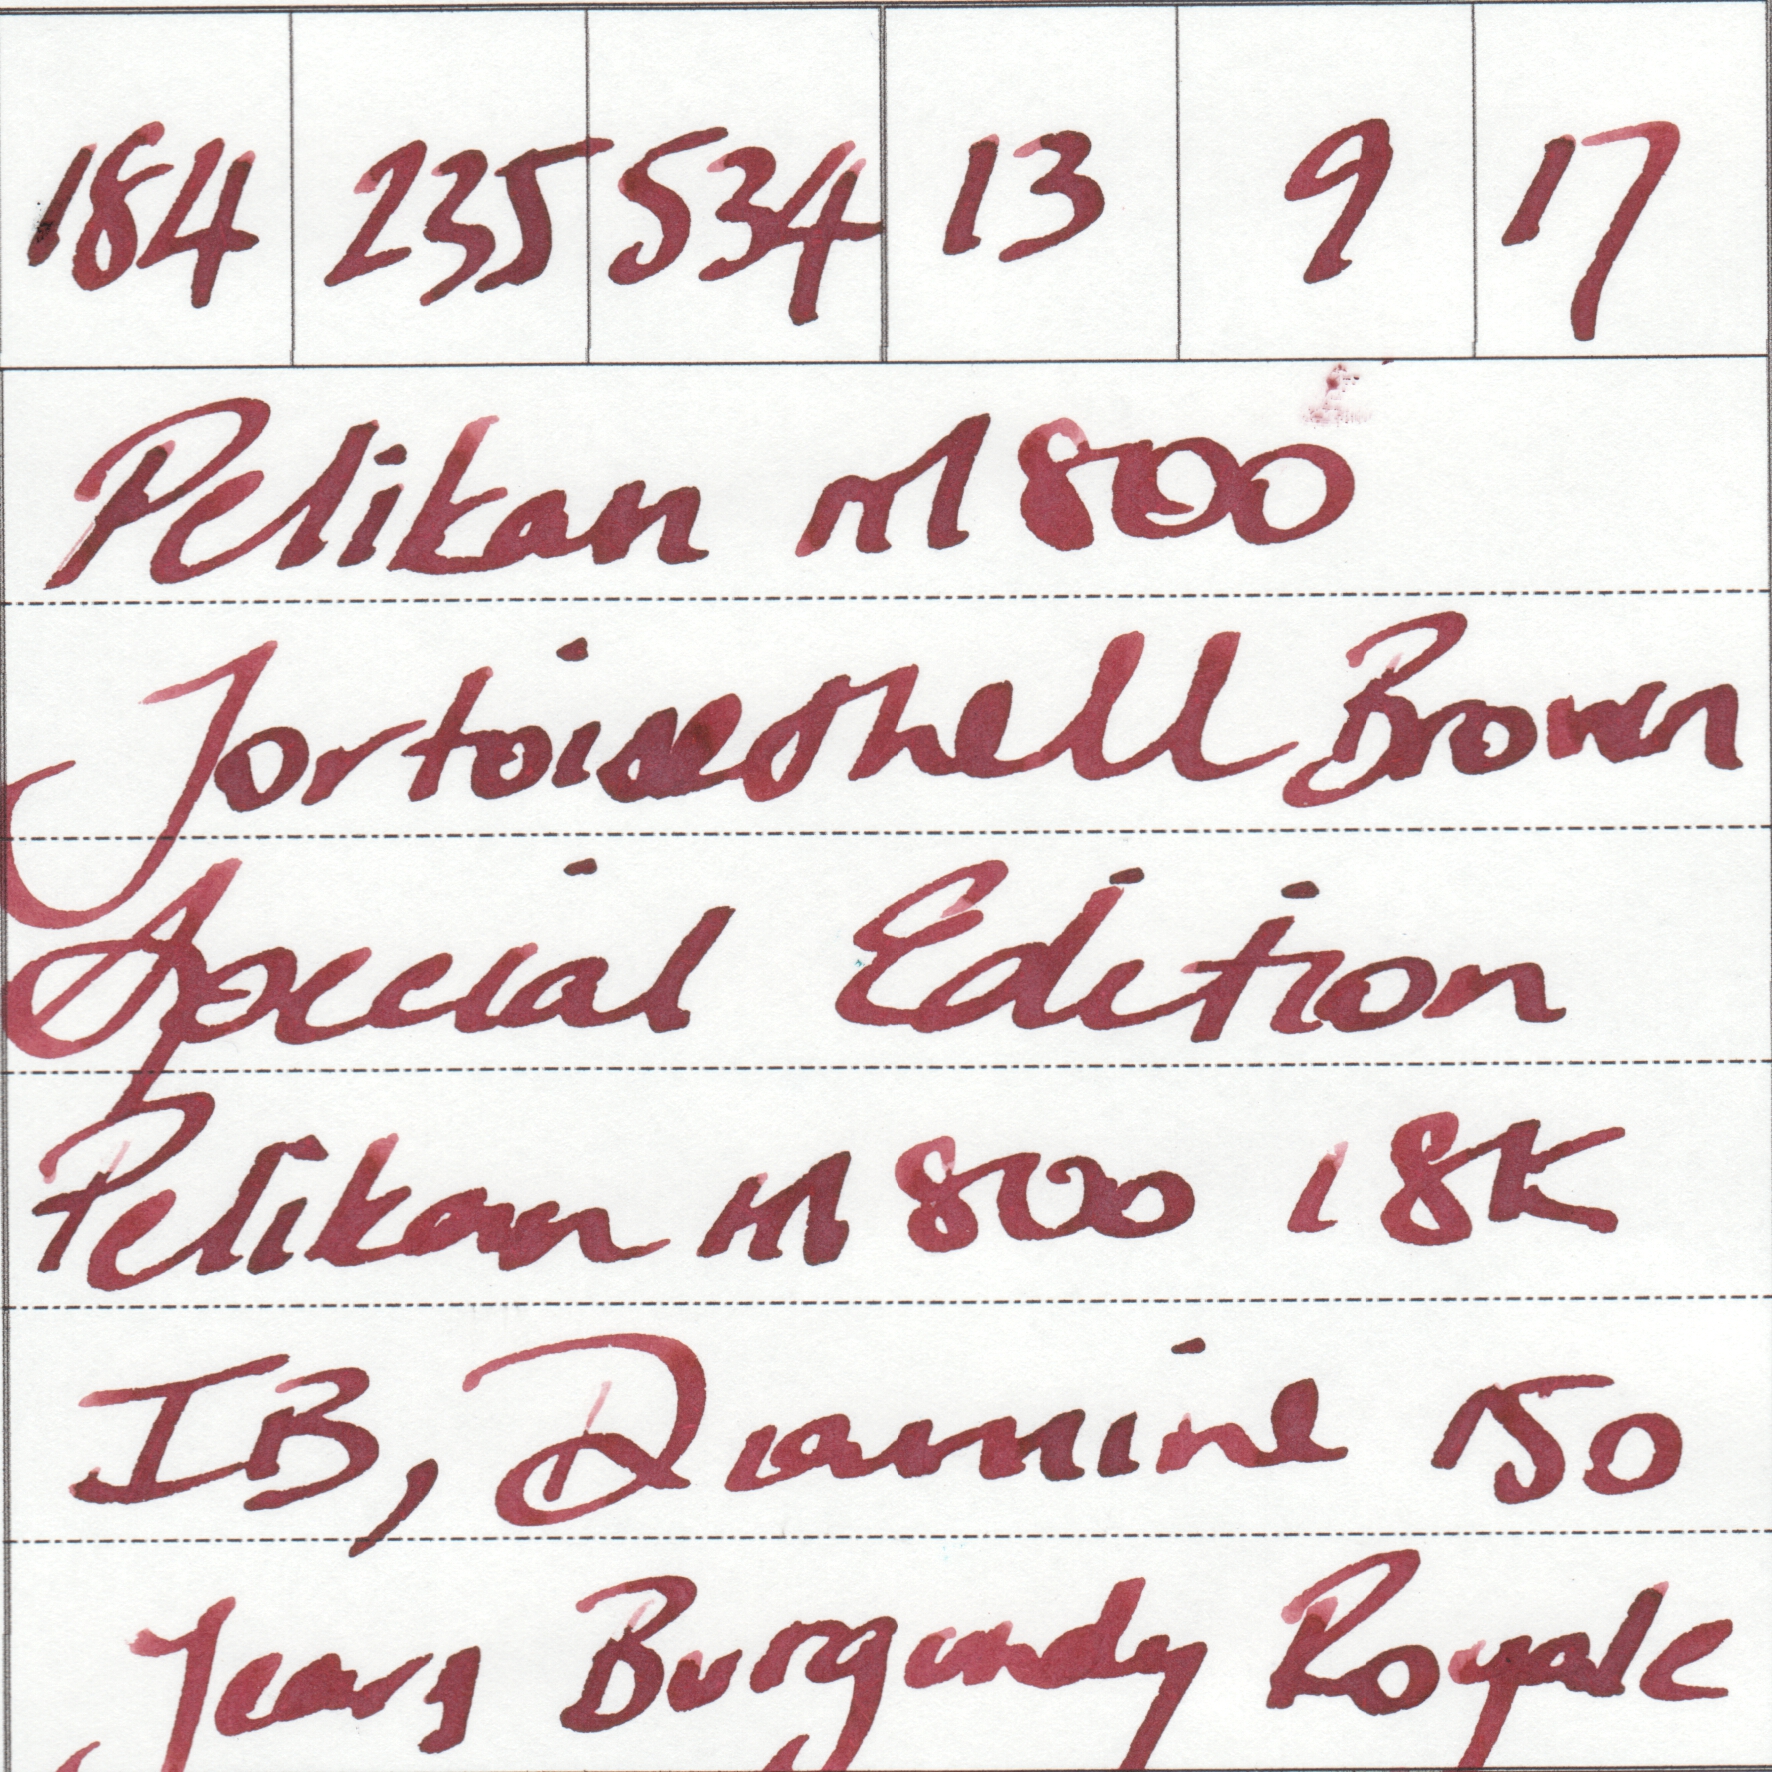 184 235 534 13 9 17
Pelikan M800
Tortoiseshell Brown
Special Edition
Pelikan M800 18K
IB, Diamine 150
Years Burgundy Royale